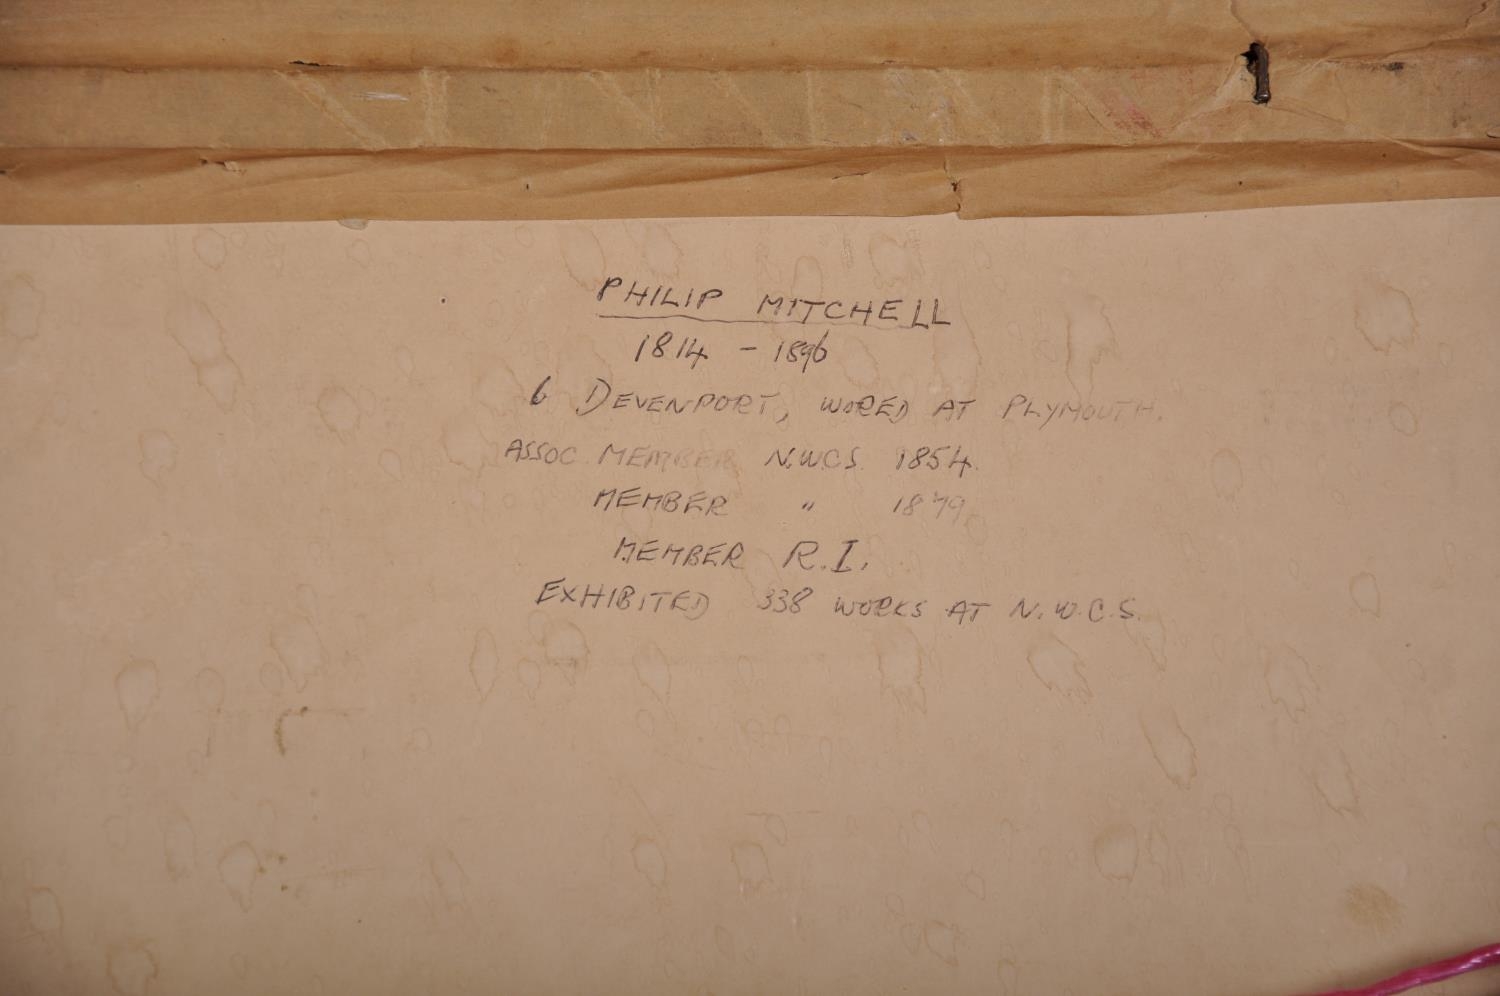 PHILIP MITCHELL
1814 - 1896
b DEVENPORT, WORED AT PLYMOUTH.
ASSOC. MEMBER N.W.C.S. 1854.
MEMBER " 1879
MEMBER R.I.
EXHIBITED 338 WORKS AT N.W.C.S.